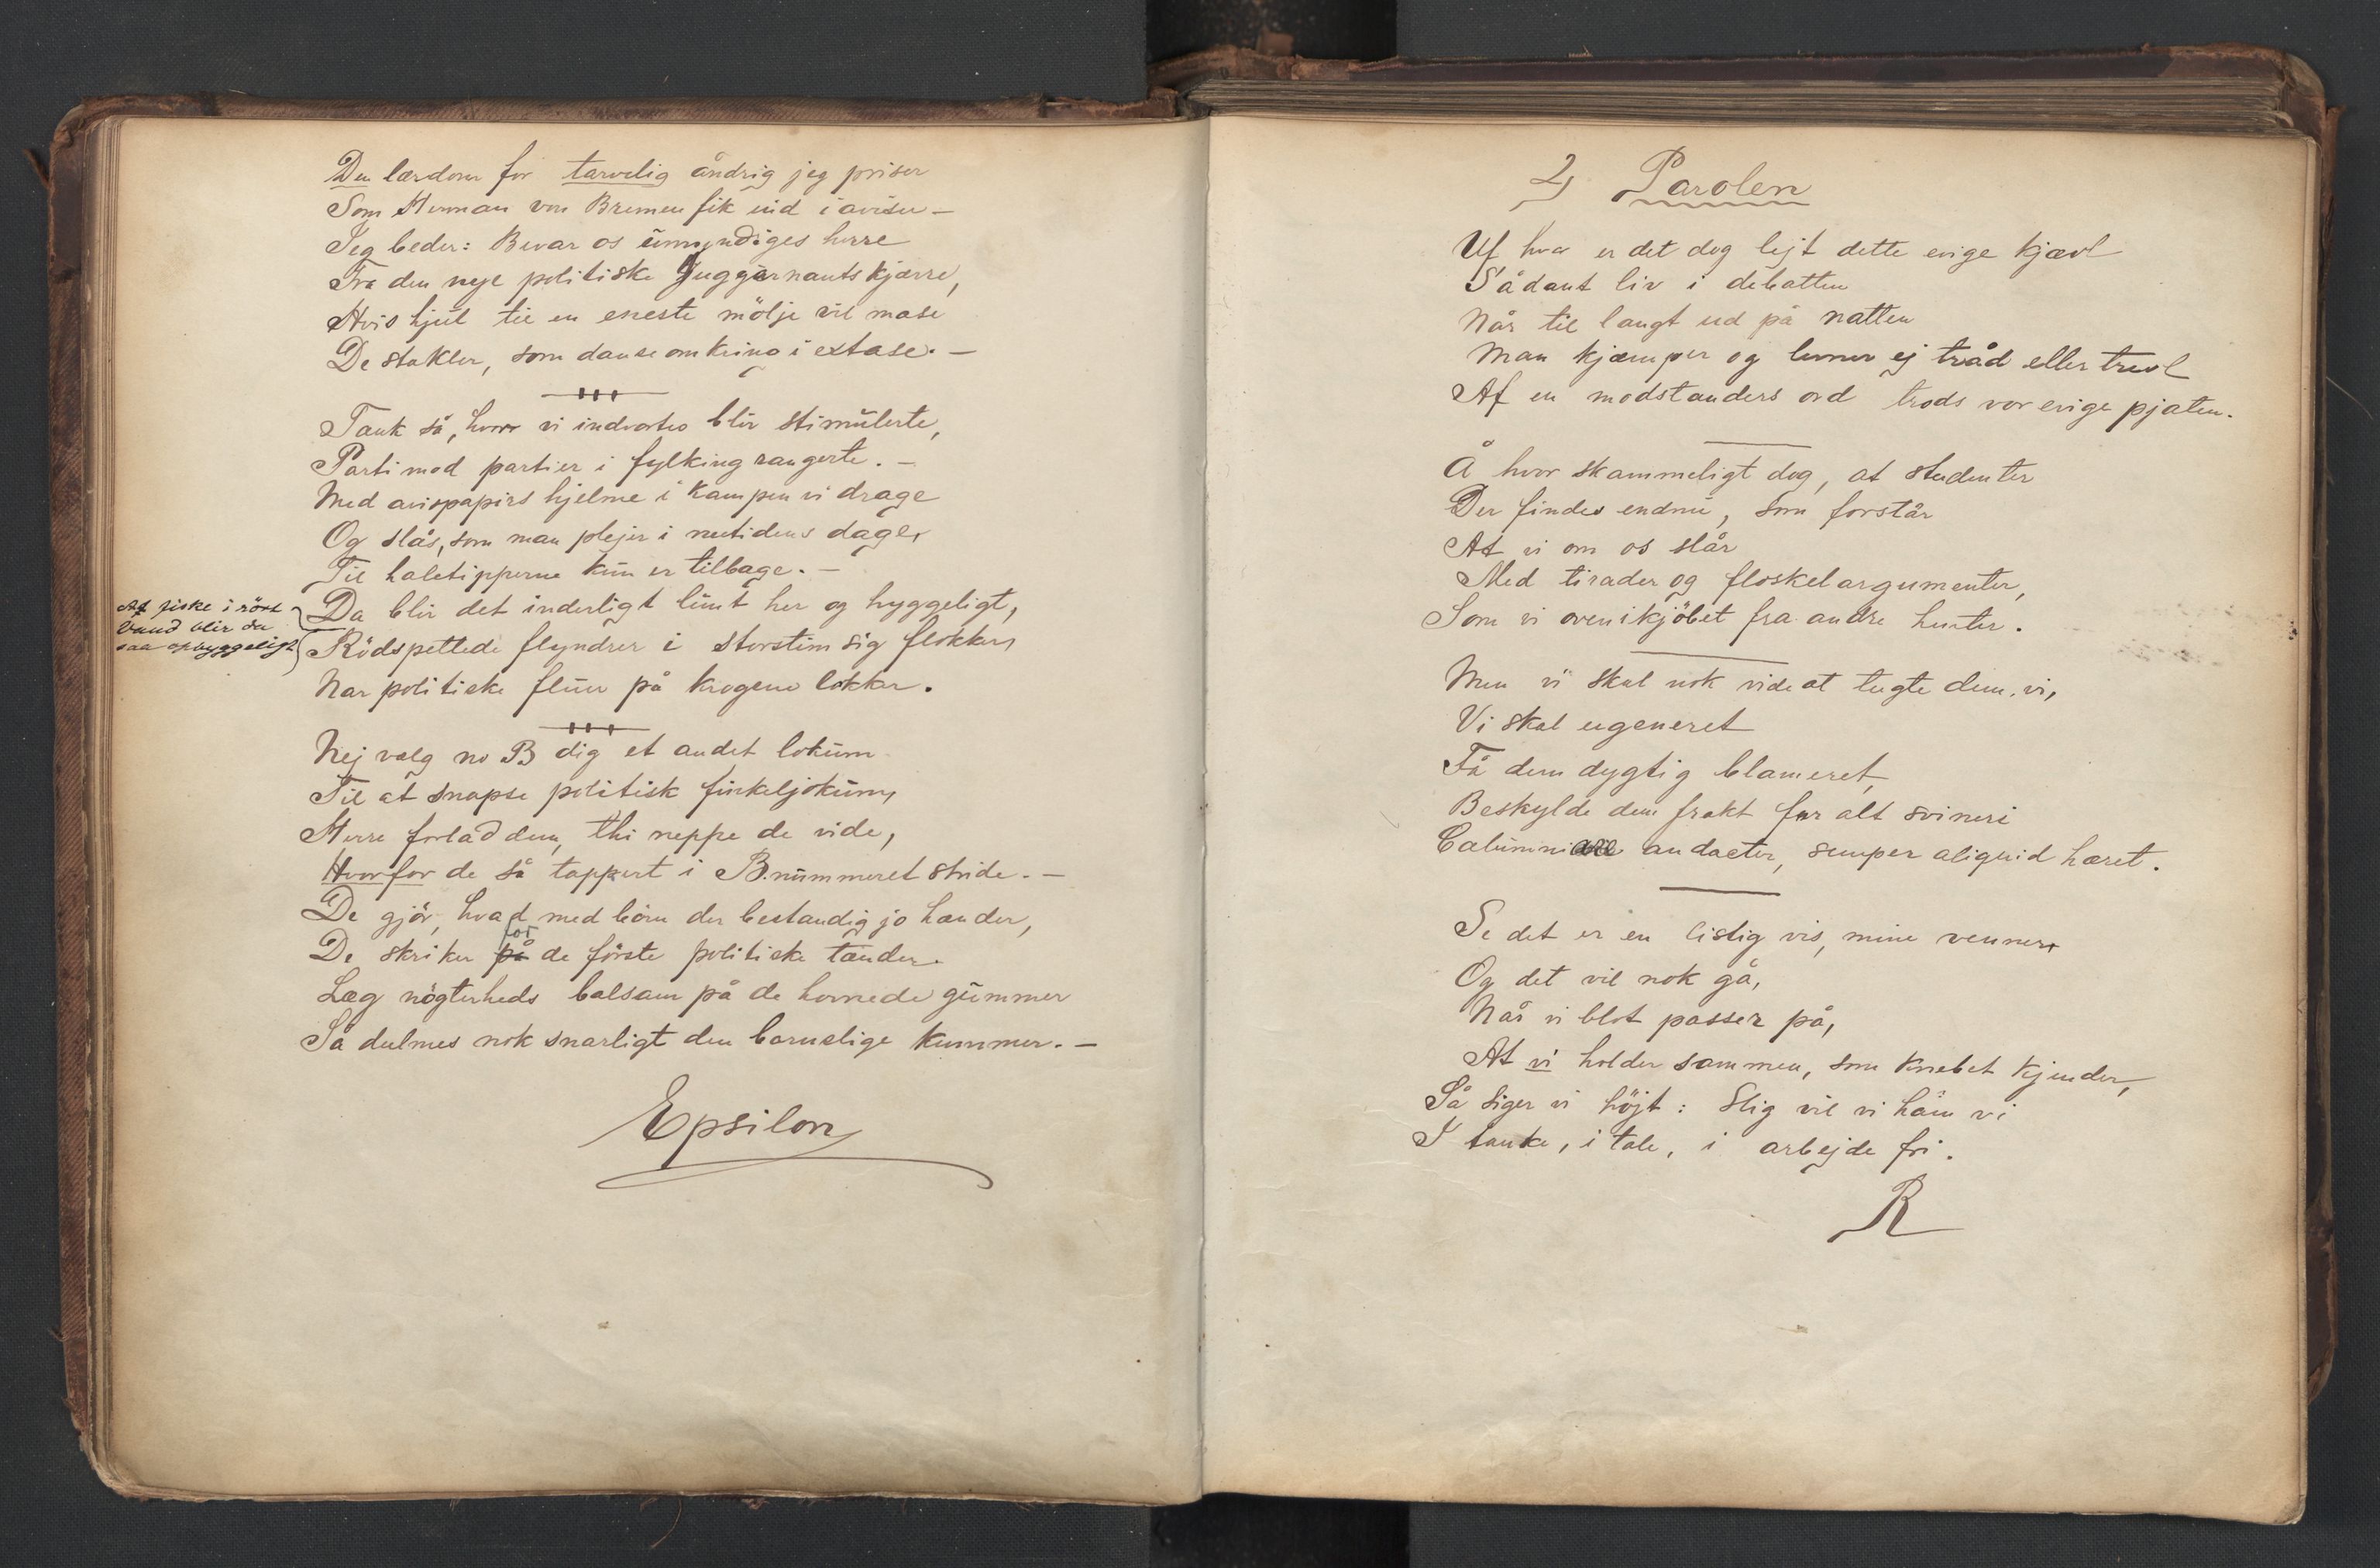 Den lærdom for tarvelig åndrig jeg priser
Som Herman von Bremen fik ind i avisen —
Jeg beder: Bevar os umyndiges herre
Fra den nye politiske Juggernautskjærre,
Hvis hjul til en eneste mölje vil mase
De stakler, som danse omkring i extase. —
Tænk så, hvor vi indvortes blir stimulerte,
Parti mod partier i fylking rangerte. —
Med avispapirs hjelme i kampen vi drage
Og slås, som man plejer i nutidens dage,
Til haletipperne kun er tilbage. —
Da blir det inderligt lunt her og hyggeligt,
At fiske i rört
Vand blir da
saa opbyggeligt
Rödspettede flyndrer i storstim sig flokker,
Nar politiske fluer på krogene lokker.
Nej vælg no B dig et andet lokum
Til at snapse politisk finkeljokum,
Herre forlad dem, thi neppe de vide,
Hvorfor de så tappert i B.nummeret stride. —
De gjör, hvad med börn der bestandig jo hænder,
De skriker på for de förste politiske tænder.
Læg nögterheds balsam på de hovnede gummer
Så dulmes nok snarligt den barnslige kummer. —
Epsilon
2) Parolen
Uf hvor er det dog lejt dette evige kjævl
Sådant liv i debatten
Når til langt ud på natten
Man kjæmper og levner ej tråd eller trevl
Af en modstanders ord trods vor evige pjaten.
Å hvor skammeligt dog, at studenter
Der findes endnu, som forstår
At vi om os slår
Med tirader og floskelargumenter,
Som vi ovenikjöbet fra andre henter.
Men vi skal nok vide at tugte dem, vi,
Vi skal ugeneret
Få dem dygtig blameret,
Beskylde dem frakt for alt svineri
Calumniare audacter, semper aliquid hæret.
Se det er en listig vis, mine venner,
Og det vil nok gå,
Når vi blot passer på,
At vi holder sammen, som knebet kjender,
Så siger vi höjt: Slig vil vi ham vi
I tanke, i tale, i arbejde fri.
R